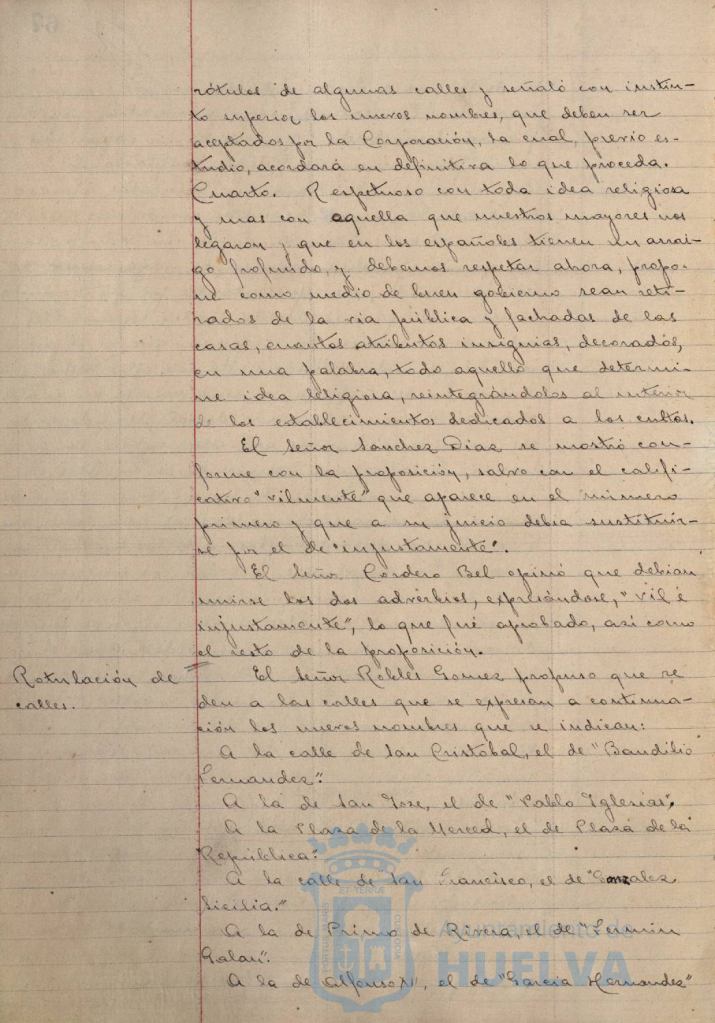 rótulos de algunas calles y señaló con instin-
to superior los nuevos nombres, que deben ser
aceptados por la Corporación, la cual, previo es-
tudio, acordará en definitiva lo que proceda.
Cuarto. Respetuoso con toda idea religiosa
y mas con aquella que nuestros mayores nos
legaron y que en los españoles tienen un arrai-
go profundo, y debemos respetar ahora, propo-
ne como medio de buen gobierno sean reti-
rados de la via pública y fachadas de las
casas, cuantos atributos insignias, decorados,
en una palabra, todo aquello que determi-
ne idea religiosa, reintegrándolos al interior
de los establecimientos dedicados a los cultos.
El Señor Sanchez Diaz se mostró con-
forme con la proposición, salvo con el califi-
cativo "vilmente" que aparece en el número
primero y que a su juicio debia sustituir-
se por el de "injustamente".
El Señor Cordero Bel opinó que debian
unirse los dos advérbios, expresándose, "vil é
injustamente", lo que fué aprobado, asi como
el resto de la proposición.
Rotulación de
calles.
El Señor Robles Gomez propuso que se
den a las calles que se expresan a continua-
ción los nuevos nombres que se indican:
A la calle de San Cristobal, el de "Baudilio
Fernandez".
A la de San Jose, el de "Pablo Iglesias".
A la Plaza de la Merced, el de Plaza de la
República".
A la calle de San Francisco, el de "Gonzalez
Sicilia."
A la de Primo de Rivera, el de "Fermin
Galan".
A la de Alfonso XII, el de "Garcia Hernandez"
Ayuntamiento de
HUELVA